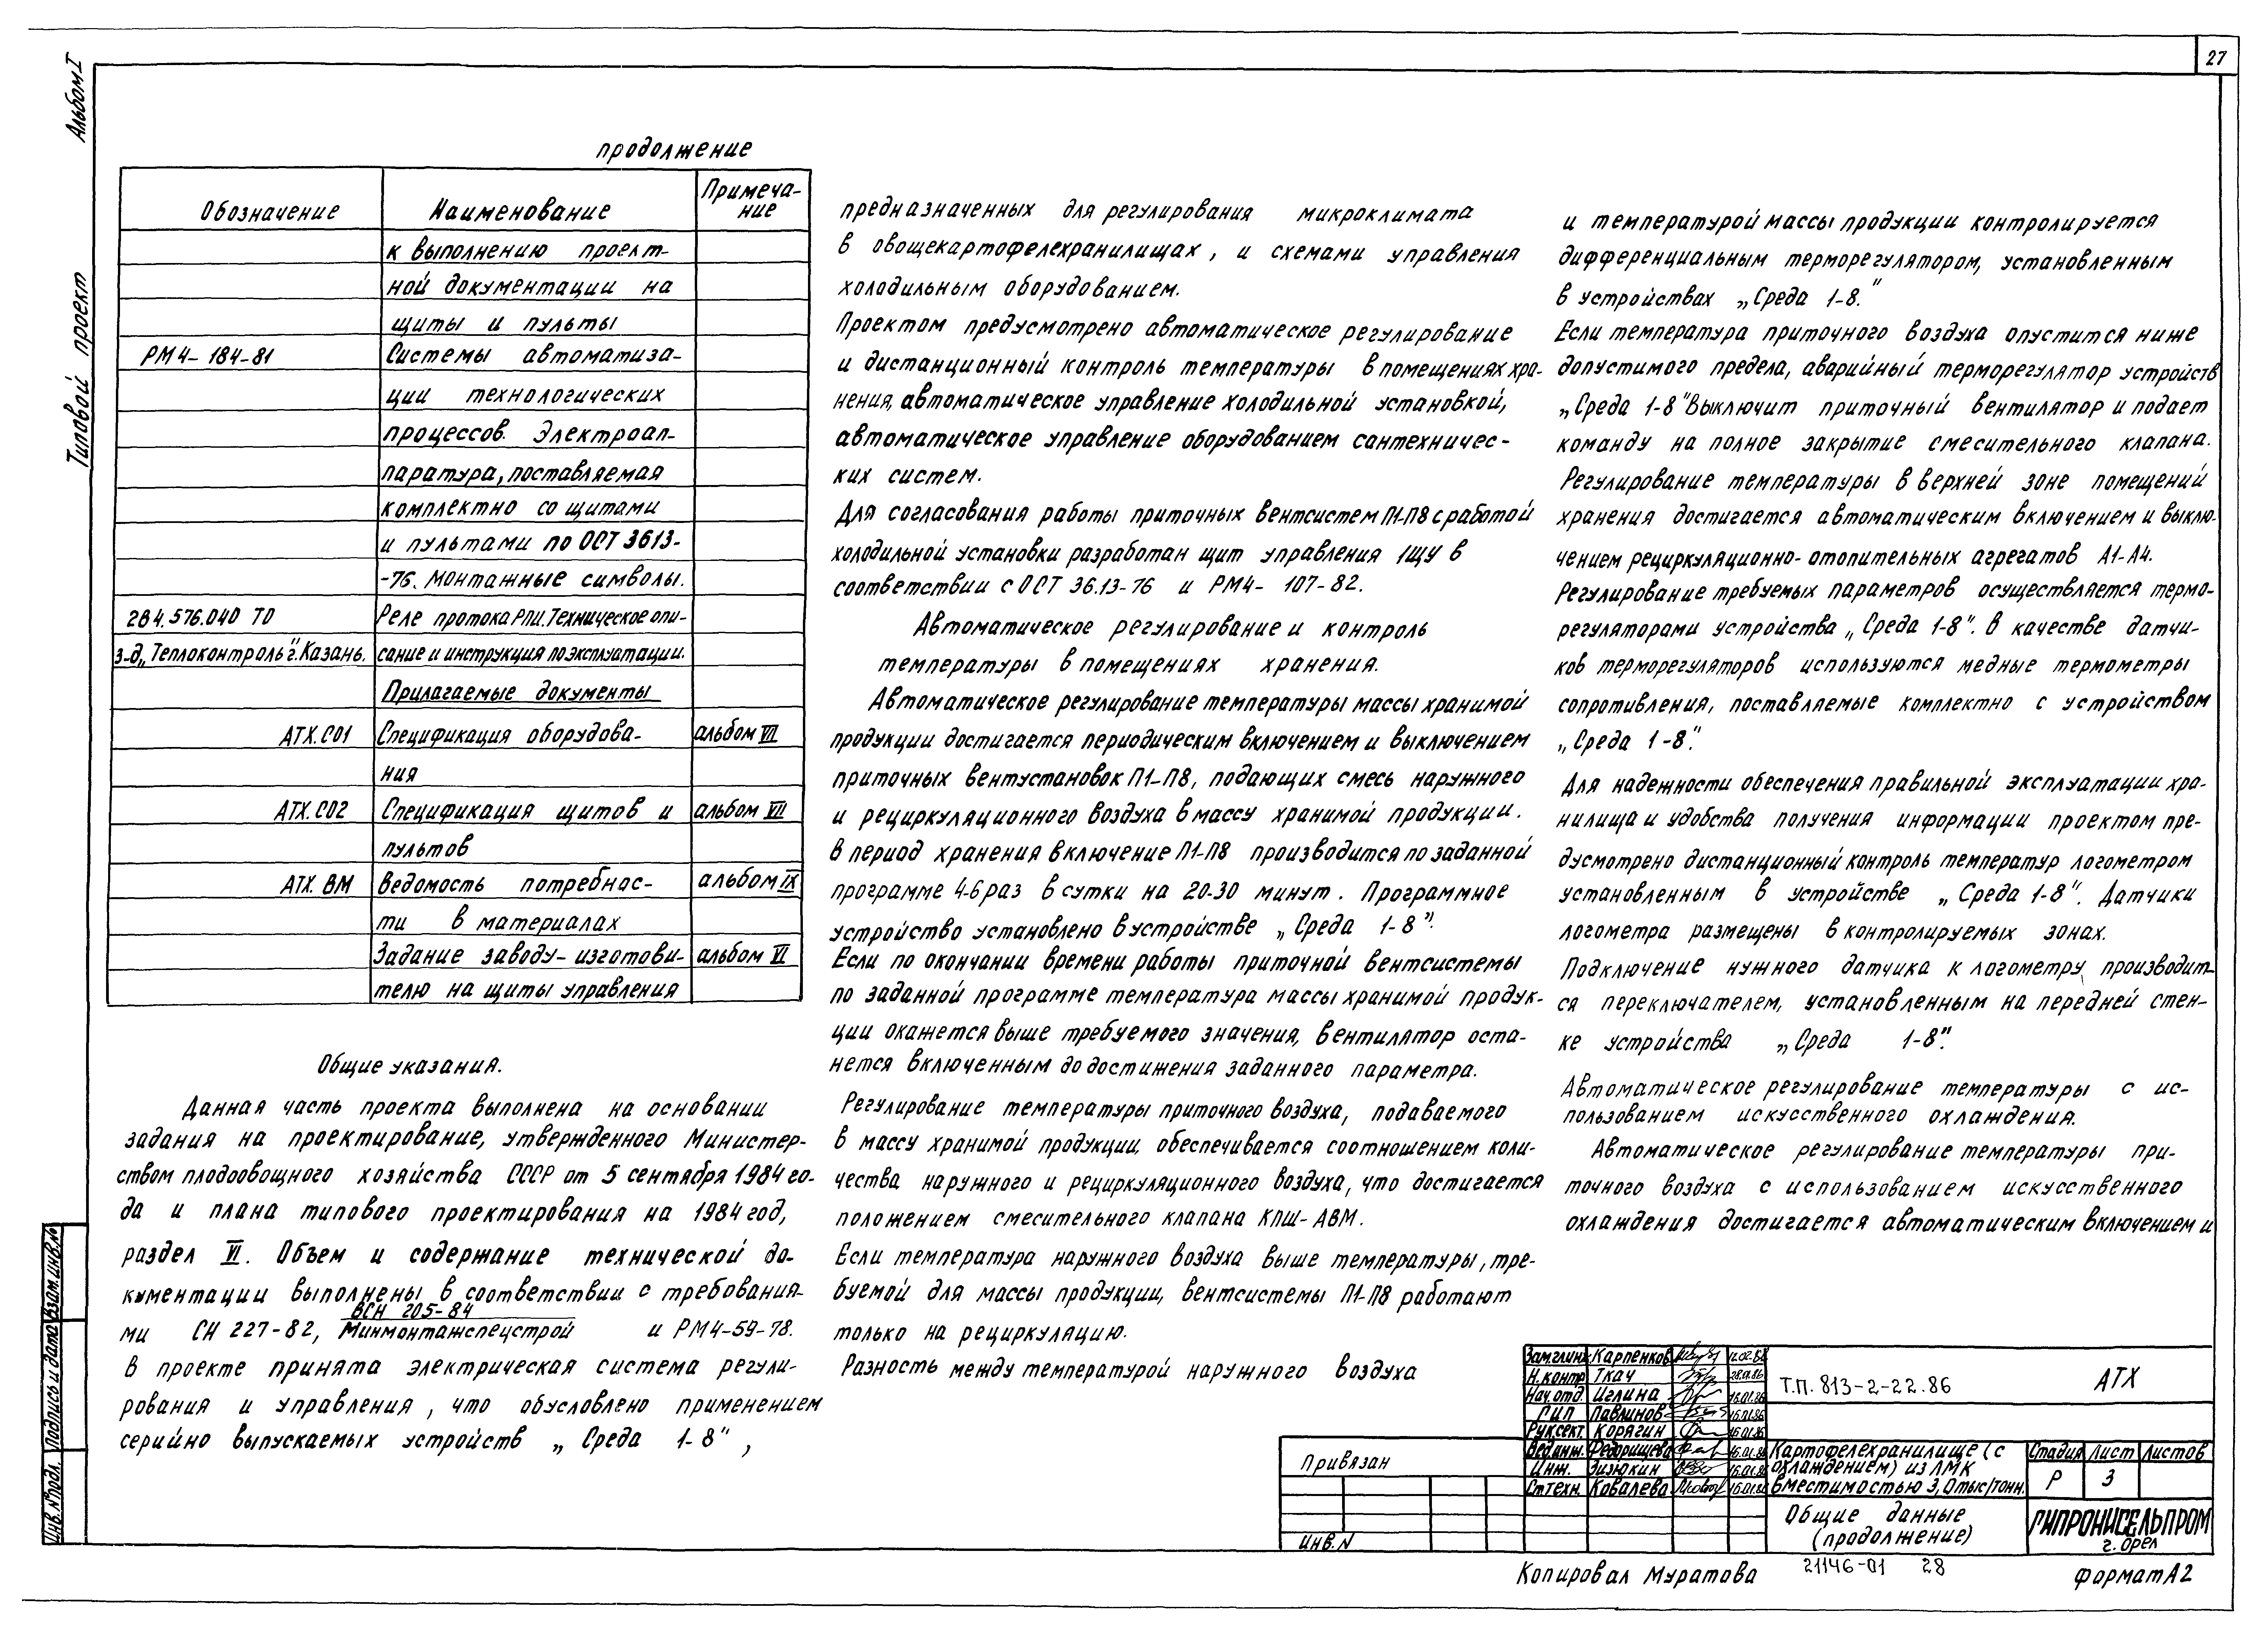 27
Альбом I
Типовой проект
продолжение
Обозначение Наименование Примеча-
ние
к выполнению проект-
ной документации на
щиты и пульты
РМ4-184-81 Системы автоматиза-
ции технологических
процессов. Электроап-
паратура, поставляемая
комплектно со щитами
и пультами по ОСТ 3613-
-76. Монтажные символы.
284.576.040 ТО Реле протока РПИ. Техническое опи-
з-д „Теплоконтроль" г. Казань. сание и инструкция по эксплуатации.
Прилагаемые документы
АТХ.СО1 Спецификация оборудова- альбом VII
ния
АТХ.СО2 Спецификация щитов и альбом VII
пультов
АТХ. ВМ Ведомость потребнос- альбом IX
ти в материалах
Задание заводу-изготови- альбом VI
телю на щиты управления
Общие указания.
Данная часть проекта выполнена на основании
задания на проектирование, утвержденного Министер-
ством плодоовощного хозяйства СССР от 5 сентября 1984 го-
да и плана типового проектирования на 1984 год,
раздел VI. Объем и содержание технической до-
кументации выполнены в соответствии с требования-
ВСН 205-84
ми СН 227-82, Минмонтажспецстрой и РМ4-59-78.
В проекте принята электрическая система регули-
рования и управления, что обусловлено применением
серийно выпускаемых устройств „Среда 1-8",
предназначенных для регулирования микроклимата
в овощекартофелехранилищах, и схемами управления
холодильным оборудованием.
Проектом предусмотрено автоматическое регулирование
и дистанционный контроль температуры в помещениях хра-
нения, автоматическое управление холодильной установкой,
автоматическое управление оборудованием сантехничес-
ких систем.
Для согласования работы приточных вентсистем П1-П8 с работой
холодильной установки разработан щит управления 1ЩУ в
соответствии с ОСТ 36.13-76 и РМ4-107-82.
Автоматическое регулирование и контроль
температуры в помещениях хранения.
Автоматическое регулирование температуры массы хранимой
продукции достигается периодическим включением и выключением
приточных вентустановок П1-П8, подающих смесь наружного
и рециркуляционного воздуха в массу хранимой продукции.
В период хранения включение П1-П8 производится по заданной
программе 4-6 раз в сутки на 20-30 минут. Программное
устройство установлено в устройстве „Среда 1-8".
Если по окончании времени работы приточной вентсистемы
по заданной программе температура массы хранимой продук-
ции окажется выше требуемого значения, вентилятор оста-
нется включенным до достижения заданного параметра.
Регулирование температуры приточного воздуха, подаваемого
в массу хранимой продукции, обеспечивается соотношением коли-
чества наружного и рециркуляционного воздуха, что достигается
положением смесительного клапана КПШ-АВМ.
Если температура наружного воздуха выше температуры, тре-
буемой для массы продукции, вентсистемы П1-П8 работают
только на рециркуляцию.
Разность между температурой наружного воздуха
и температурой массы продукции контролируется
дифференциальным терморегулятором, установленным
в устройствах „Среда 1-8."
Если температура приточного воздуха опустится ниже
допустимого предела, аварийный терморегулятор устройств
„Среда 1-8" выключит приточный вентилятор и подает
команду на полное закрытие смесительного клапана.
Регулирование температуры в верхней зоне помещений
хранения достигается автоматическим включением и выклю-
чением рециркуляционно-отопительных агрегатов А1-А4.
Регулирование требуемых параметров осуществляется термо-
регуляторами устройства „Среда 1-8". В качестве датчи-
ков терморегуляторов используются медные термометры
сопротивления, поставляемые комплектно с устройством
„Среда 1-8".
Для надежности обеспечения правильной эксплуатации хра-
нилища и удобства получения информации проектом пре-
дусмотрено дистанционный контроль температур логометром
установленным в устройстве „Среда 1-8". Датчики
логометра размещены в контролируемых зонах.
Подключение нужного датчика к логометру производит-
ся переключателем, установленным на передней стен-
ке устройства „Среда 1-8".
Автоматическое регулирование температуры с ис-
пользованием искусственного охлаждения.
Автоматическое регулирование температуры при-
точного воздуха с использованием искусственного
охлаждения достигается автоматическим включением и
Инв. № подл. Подпись и дата Взам. инв. №
Привязан
Инв. N
Зам.гл.инж. Карпенков 12.02.86
Н. контр. Ткач 28.01.86
Нач. отд. Иглина 16.01.86
ГИП Павлинов 16.01.86
Рук.сект. Корягин 16.01.86
Вед.инж. Федорищева 16.01.86
Инж. Зизюкин 16.01.86
Ст.техн. Ковалева 16.01.86
Т.П. 813-2-22.86 АТХ
Картофелехранилище (с
охлаждением) из ЛМК
вместимостью 3,0 тыс/тонн.
Стадия Лист Листов
Р 3
Общие данные
(продолжение)
ГИПРОНИСЕЛЬПРОМ
г. Орел
Копировал Муратова
21146-01 28
Формат А2